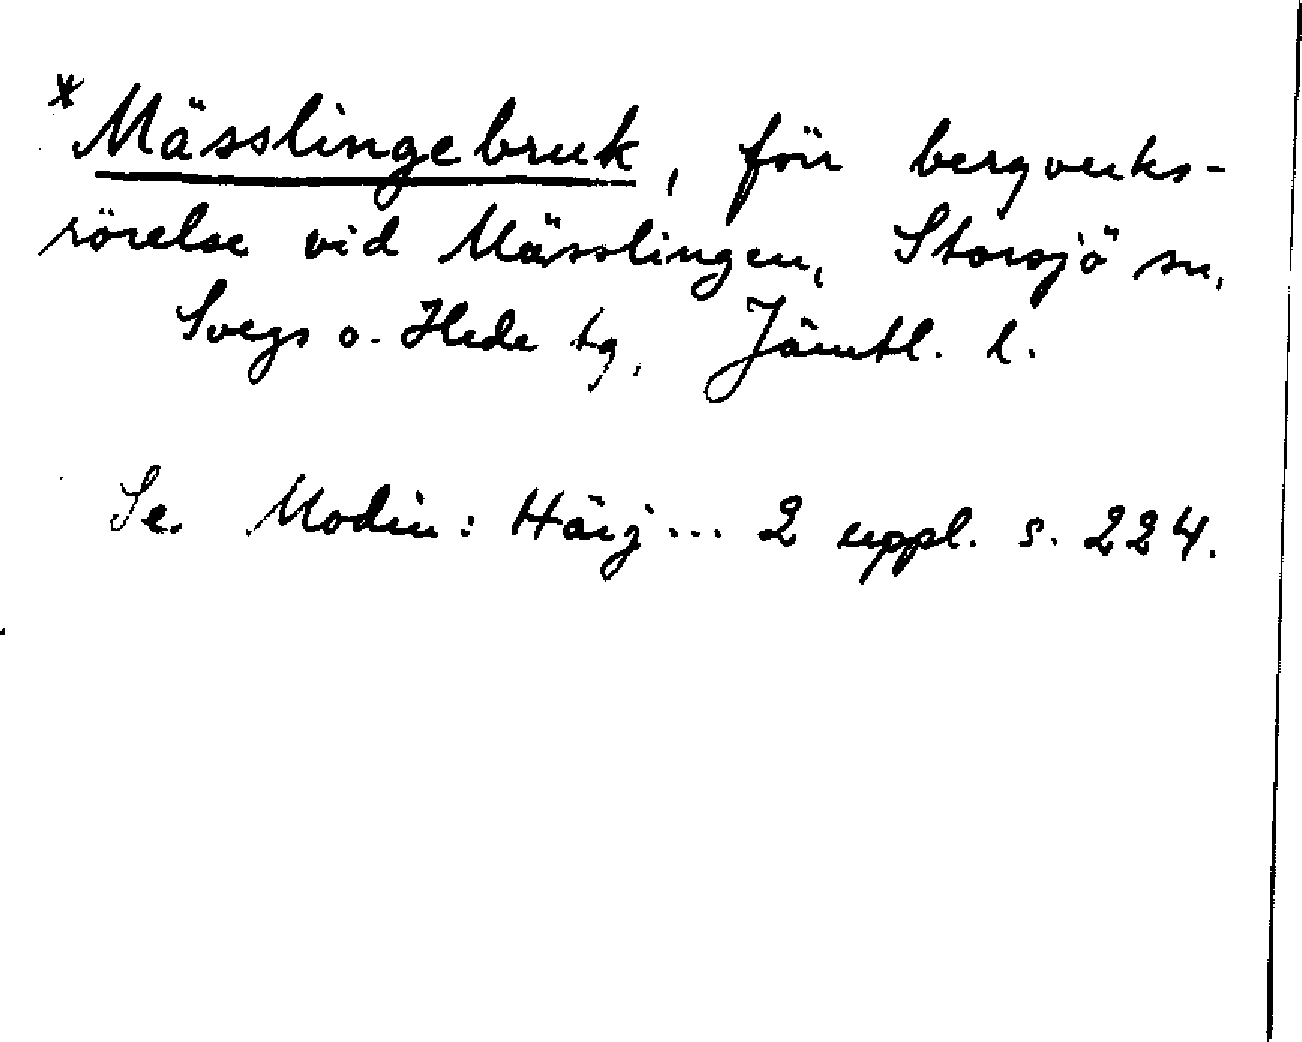 * Mässlingebruk, för bergverks-
rörelse vid Mässlingen, Storsjö sn,
Svegs o. Hede tg, Jämtl. l.
Se. Modin: Härj... 2 uppl. s. 224.